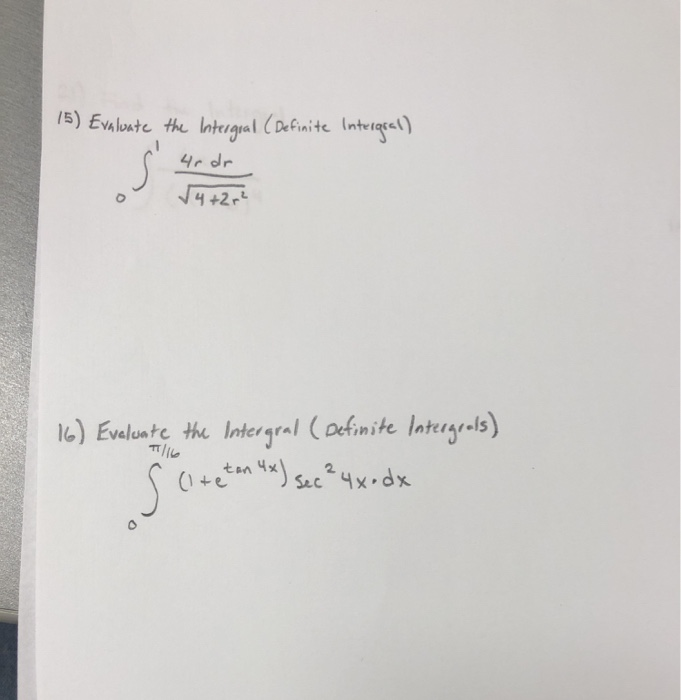 15) Evaluate the Intergral (Definite Intergral)
∫₀¹ 4r dr / √4+2r²
16) Evaluate the Intergral (Definite Intergrals)
∫₀^π/16 (1+e^tan 4x) sec² 4x · dx